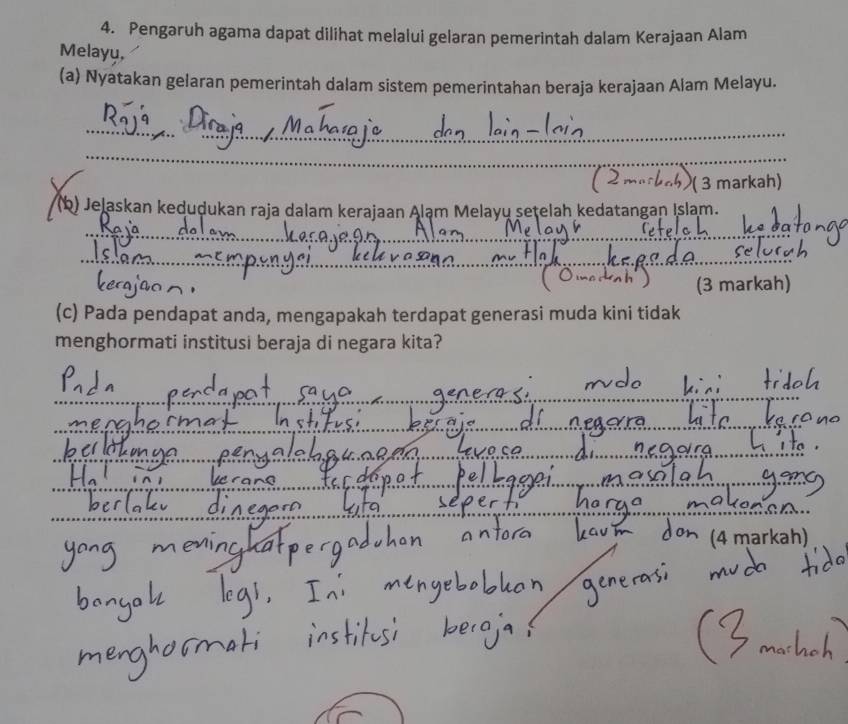 4. Pengaruh agama dapat dilihat melalui gelaran pemerintah dalam Kerajaan Alam
Melayu.
(a) Nyatakan gelaran pemerintah dalam sistem pemerintahan beraja kerajaan Alam Melayu.
Raja, Diraja, Maharaja dan lain-lain
(2 markah) (3 markah)
(b) Jelaskan kedudukan raja dalam kerajaan Alam Melayu setelah kedatangan Islam.
Raja dalam kerajaan Alam Melayu setelah kedatanga
Islam mempunyai kekuasaan mutlak kepada seluruh
kerajaan. (0 markah) (3 markah)
(c) Pada pendapat anda, mengapakah terdapat generasi muda kini tidak
menghormati institusi beraja di negara kita?
Pada pendapat saya, generasi muda kini tidak
menghormat institusi beraja di negara kita kerana
penyalahgunaan kuasa di negara kita.
Hal ini kerana terdapat pelbagai masalah yang
berlaku dinegara kita seperti harga makanan
yang meningkat pergaduhan antara kaum dan (4 markah)
banyak lagi. Ini menyebabkan generasi muda tida
menghormati institusi beraja.
(3 markah)